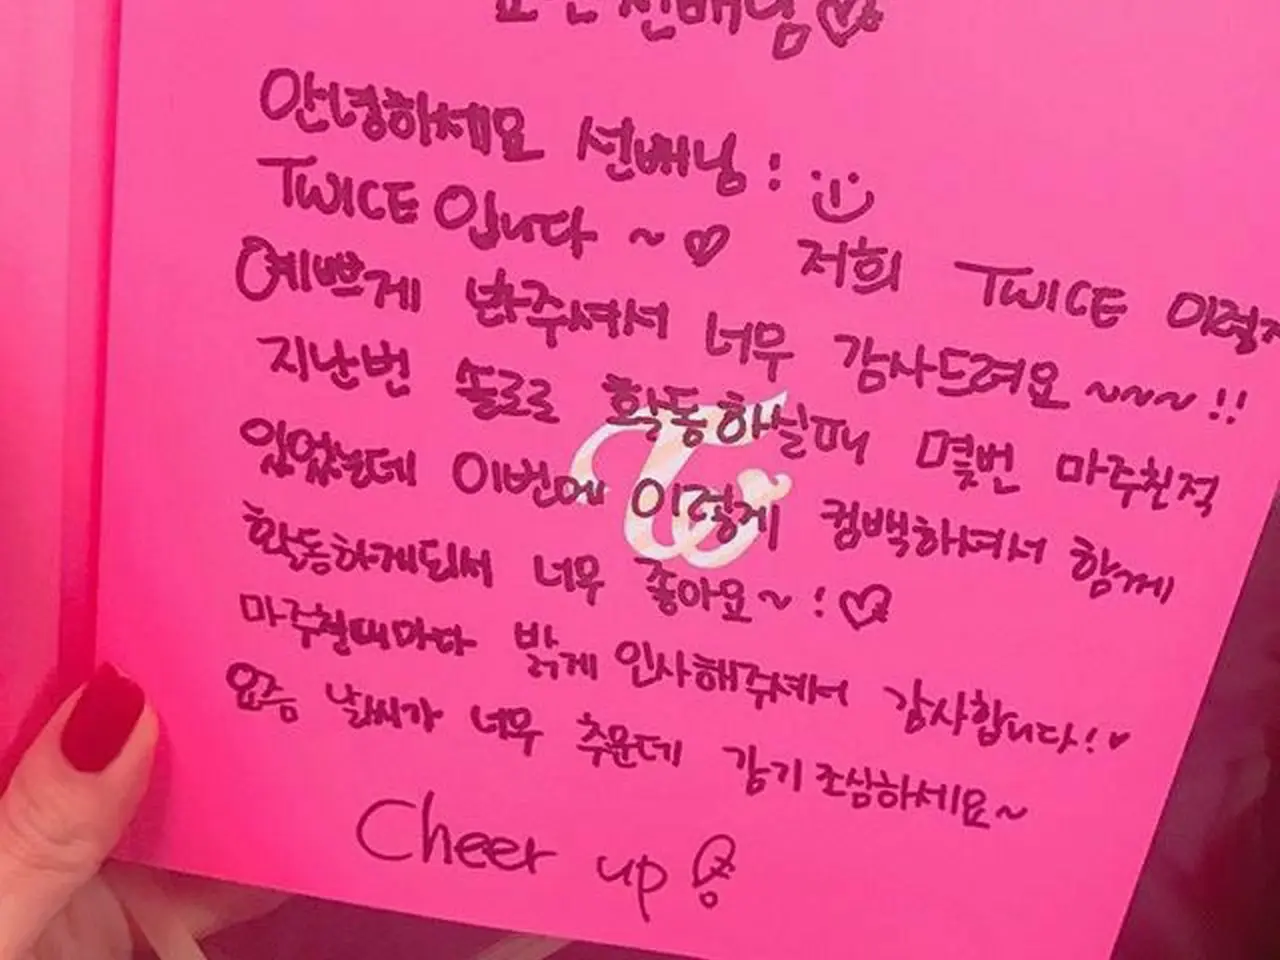 선배님♡
안녕하세요 선배님! :)
TWICE입니다~♡ 저희 TWICE 이렇게
예쁘게 봐주셔서 너무 감사드려요~~~!!
지난번 솔로로 활동하실때 몇번 마주친적
있었는데 이번에 이렇게 컴백하셔서 함께
활동하게되서 너무 좋아요~!♡
마주칠때마다 밝게 인사해주셔서 감사합니다!♥
요즘 날씨가 너무 추운데 감기조심하세요~
Cheer up